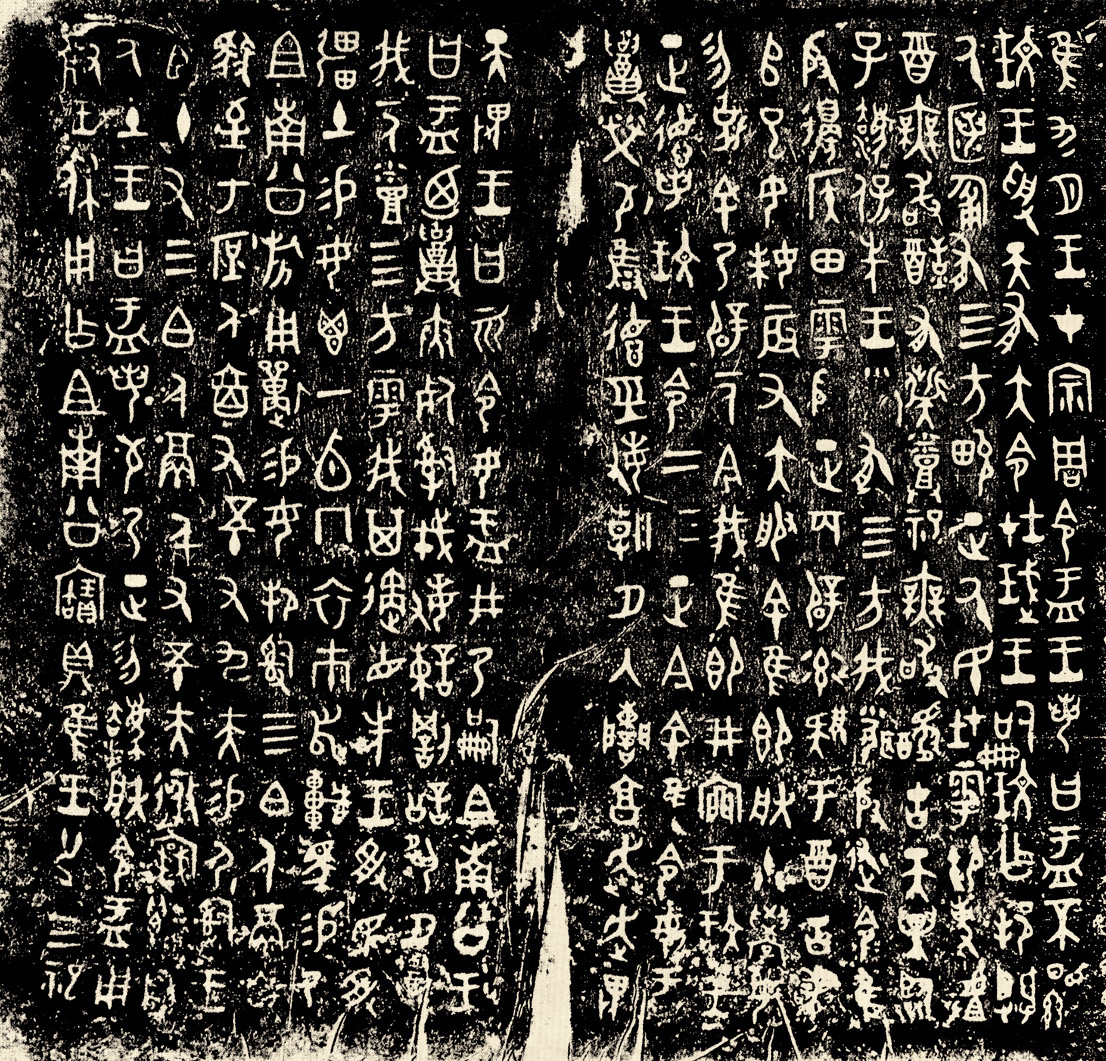 隹九月王才宗周令盂王若曰盂不顯
玟王受天有大令在珷王嗣玟乍邦闢
厥匿匍有四方畯正厥民在𩁹御事𠭯
酉無敢酖有髭烝祀無敢醻古天異臨
子灋保先王□有四方我聞殷述令隹
殷邊侯田𩁹殷正百辟率肄于酉古喪
𠂤巳女妹辰又大服余隹即朕小學女
勿剋余乃辟一人今我隹即井㐭于玟王
正德若玟王令二三正今余隹令女盂
召榮敬雍德巠敏朝夕入讕享奔走畏
天畏王曰而令女盂井乃嗣且南公王
曰盂廼召夾死司戎敏諫罰訟夙夕召
我一人烝四方𩁹我其遹省先王受民受
疆土易女鬯一卣冂衣巿舄車馬易乃
且南公旂用狩易女邦司四白人鬲自
馭至于庶人六百又五十又九夫易尸司王
臣十又三白人鬲千又五十夫遷自
厥土王曰盂若敬乃正勿灋朕令盂用
對王休用乍且南公寶鼎隹王廿又三祀